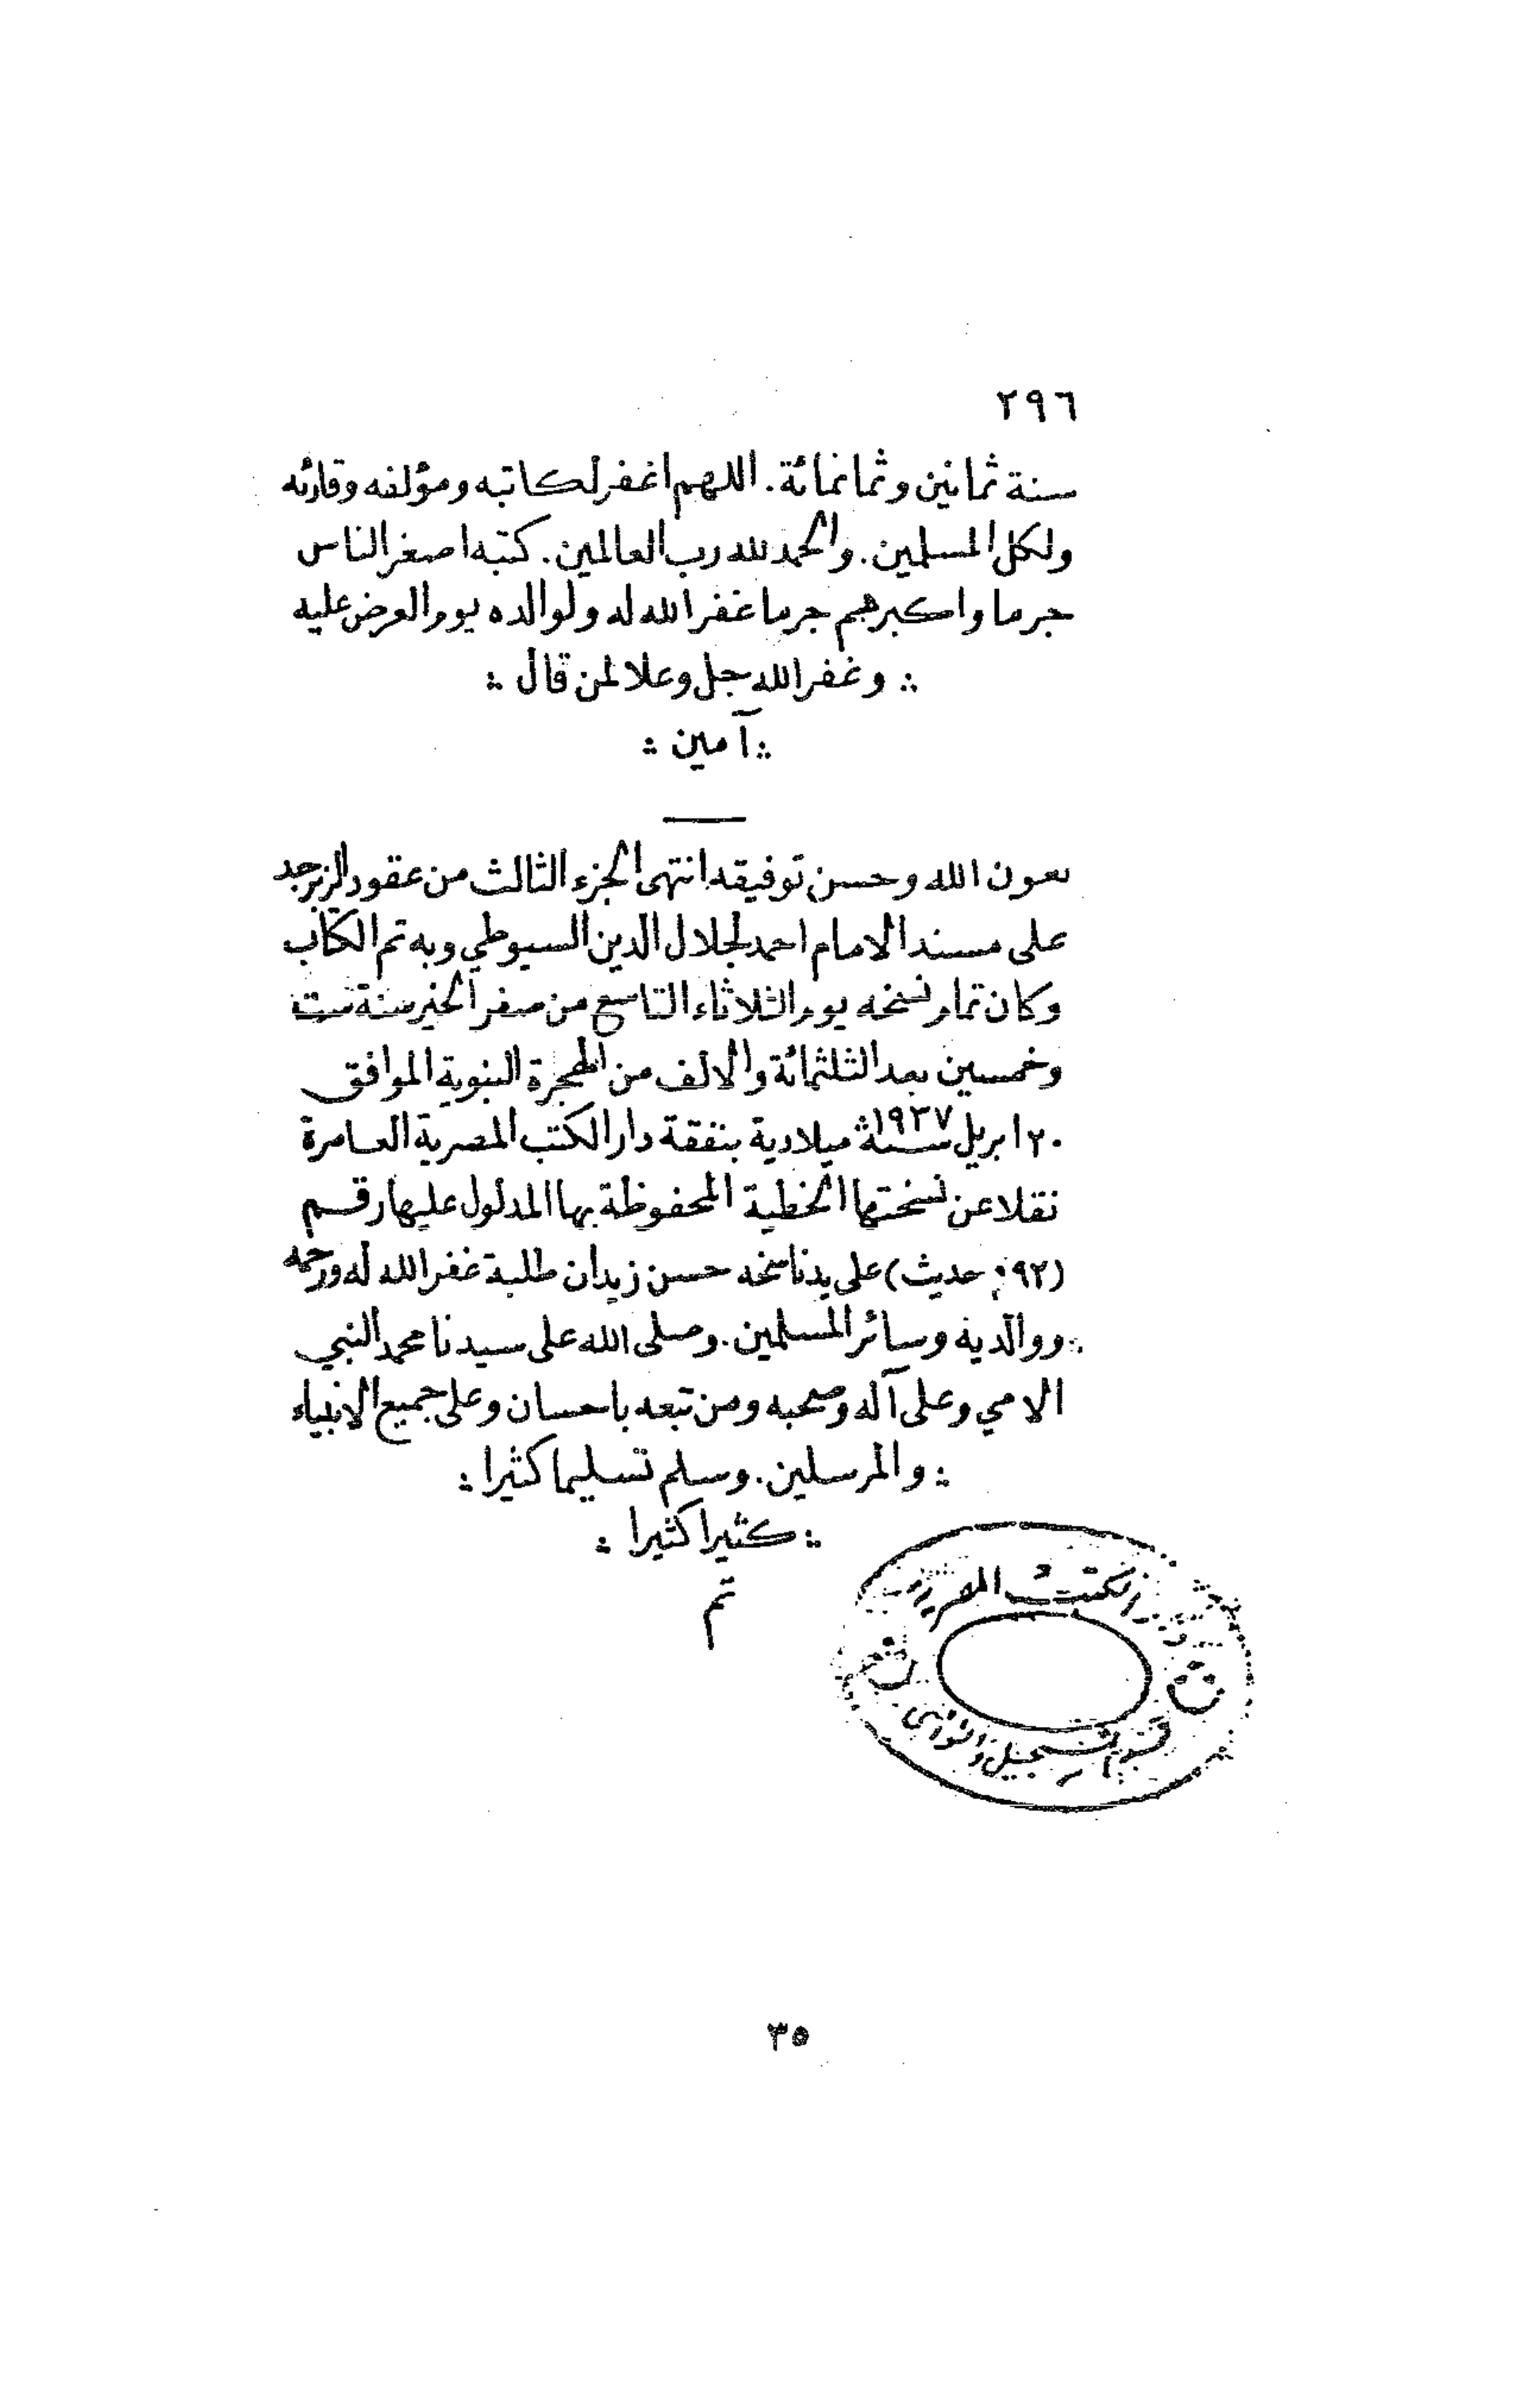 ٢٩٦
سنة ثمانين وثمانمائة . اللهم اغفر لكاتبه ومؤلفه وقارئه
ولكل المسلمين . والحمد لله رب العالمين . كتبه اصغر الناس
جرما واكبرهم جرما غفر الله له ولوالده يوم العرض عليه
وغفر الله جل وعلا لمن قال
آمين
بعون الله وحسن توفيقه انتهى الجزء الثالث من عقود الزبرجد
على مسند الامام احمد لجلال الدين السيوطي وبه تم الكتاب
وكان تمام نسخه يوم الثلاثاء التاسع من صفر الخير سنة ست
وخمسين بعد الثلثمائة والالف من الهجرة النبوية الموافق
٢٠ ابريل سنة ١٩٣٧ ميلادية بنفقة دار الكتب المصرية العامرة
نقلا عن نسختها الخطية المحفوظة بها المدلول عليها رقم
حديث) على يد ناسخه حسن زيدان طلبة غفر الله له ورحمه
ووالديه وسائر المسلمين . وصلى الله على سيدنا محمد النبي
الامي وعلى آله وصحبه ومن تبعه باحسان وعلى جميع الانبياء
والمرسلين . وسلم تسليما كثيرا
كثيرا كثيرا
تم
دار الكتب المصرية
قسم التسجيل
٣٥